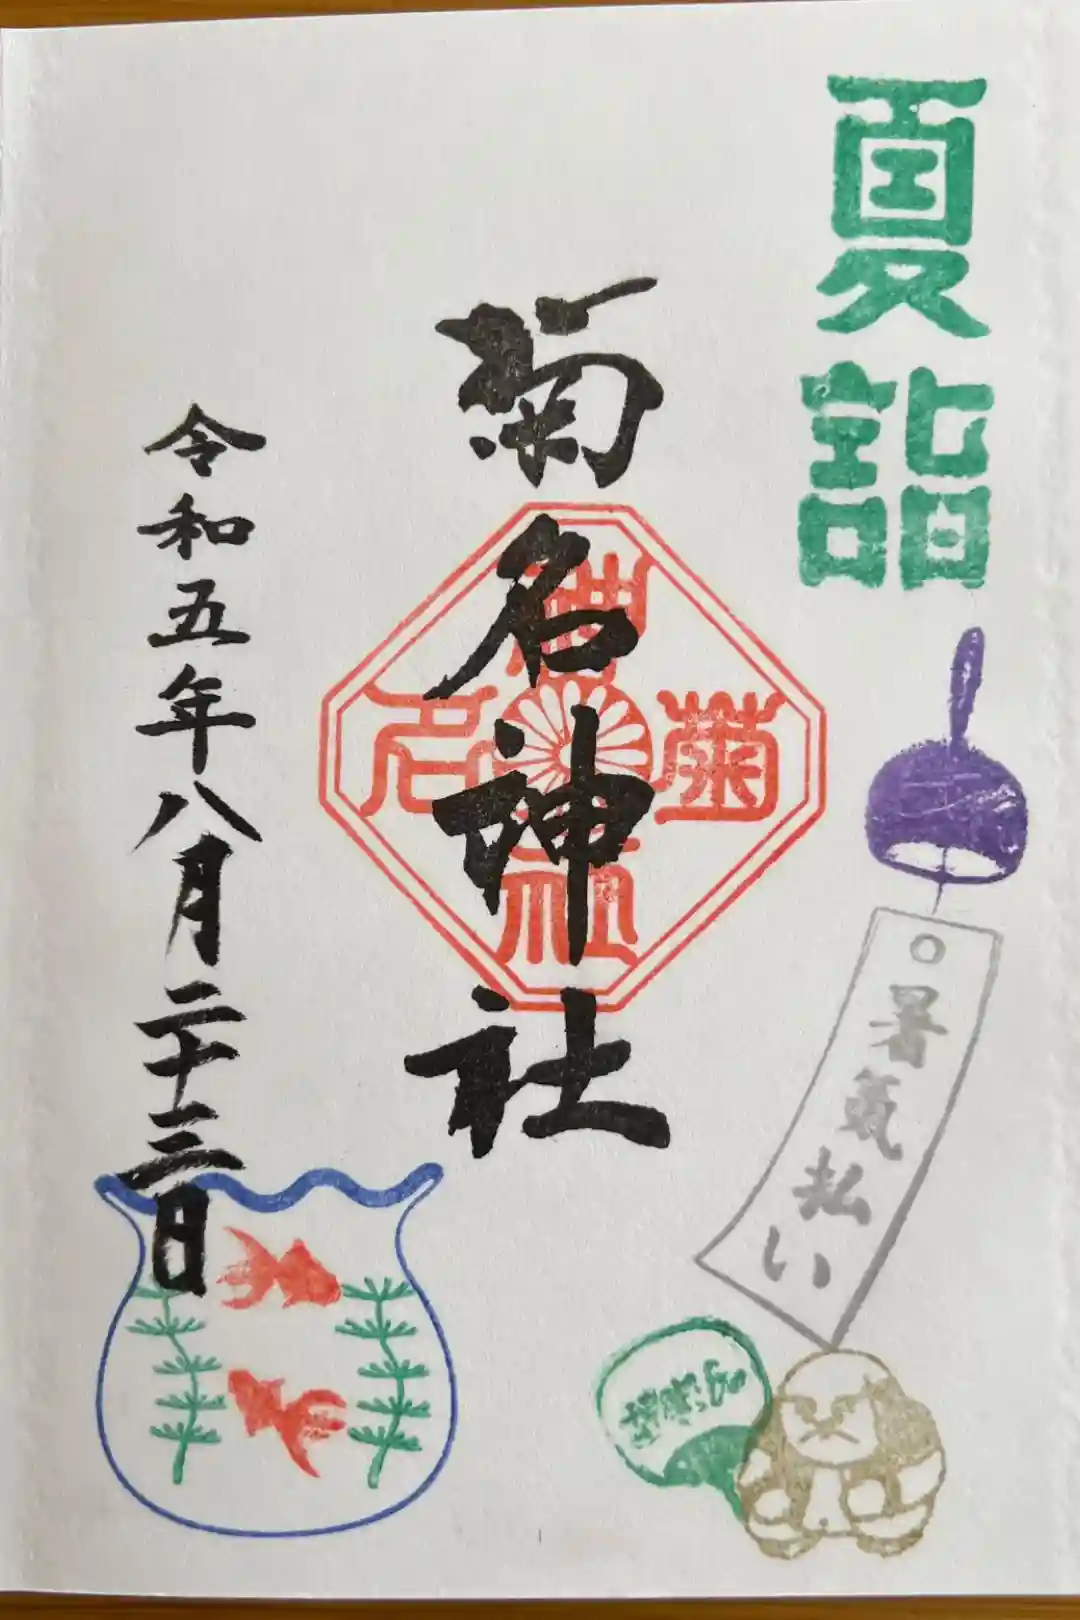 夏詣
暑気払い
菊名神社
菊名神社
令和五年八月二十三日